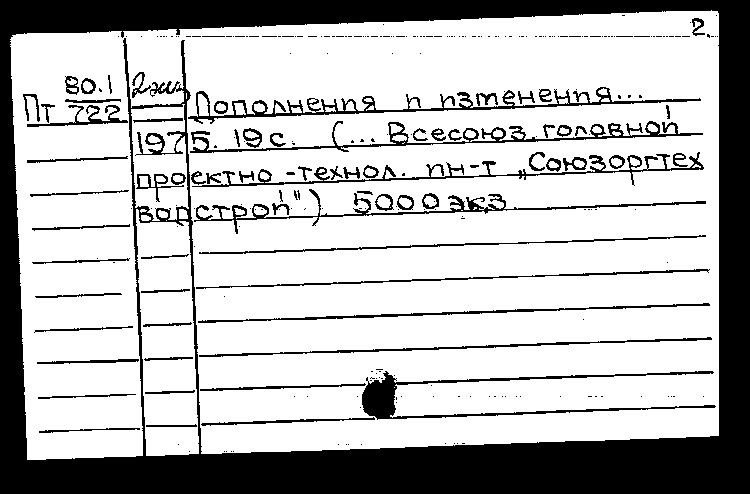 2.
Пт 80.1/722 2 экз Дополнения и изменения...
1975. 19 с. (... Всесоюз. головной
проектно-технол. ин-т „Союзоргтех
водстрой") 5000 экз.